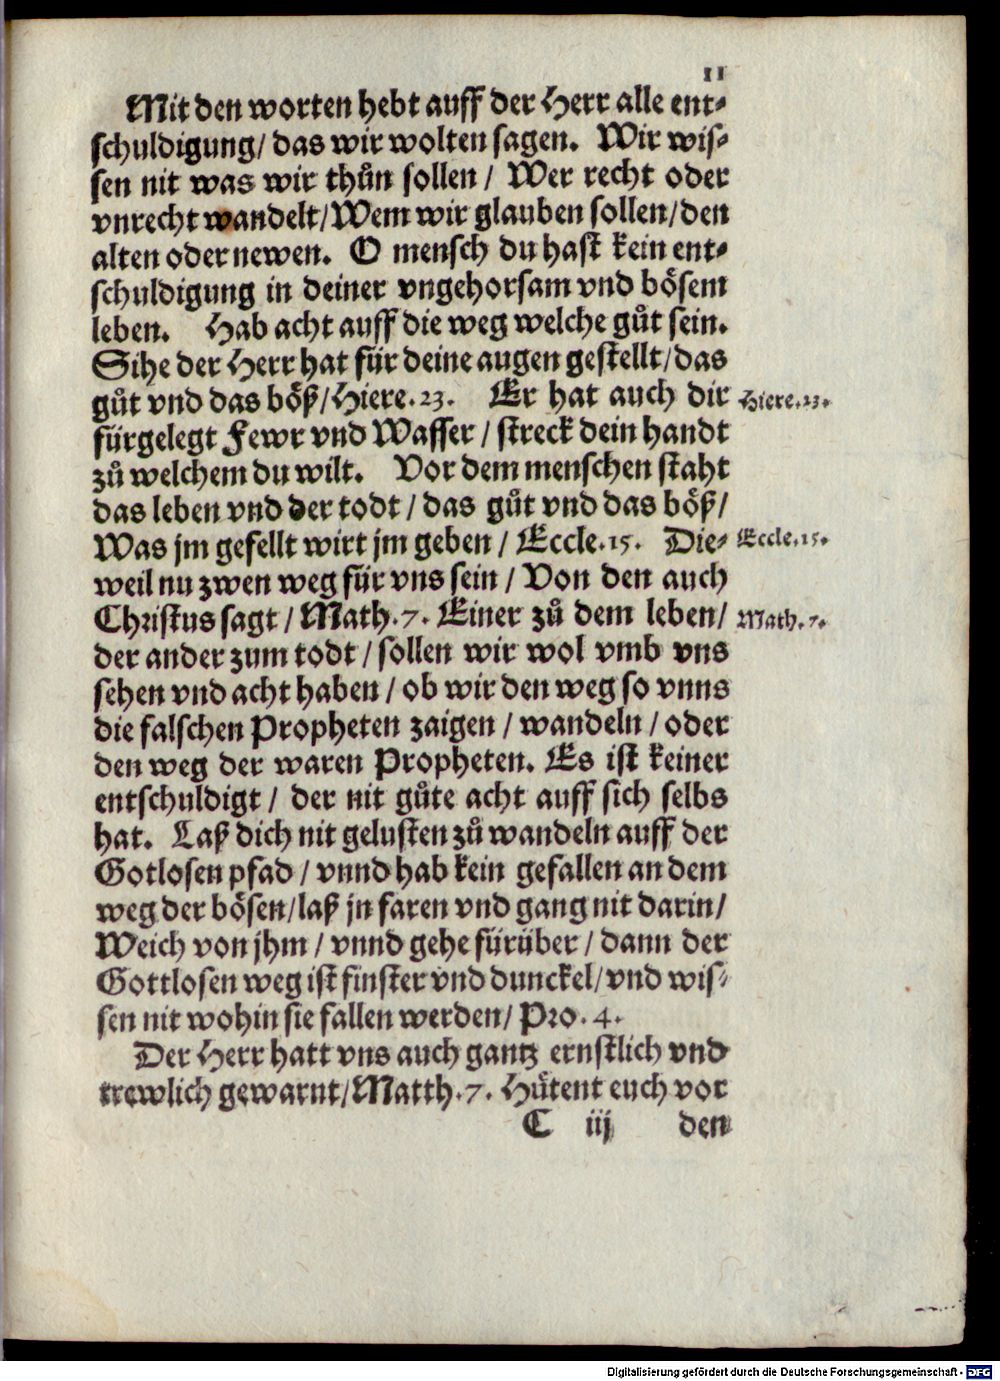 11
Mit den worten hebt auff der Herr alle ent⸗
schuldigung/ das wir wolten sagen. Wir wis⸗
sen nit was wir thůn sollen / Wer recht oder
vnrecht wandelt/Wem wir glauben sollen/den
alten oder newen. O mensch du hast kein ent⸗
schuldigung in deiner vngehorsam vnd bösem
leben. Hab acht auff die weg welche gůt sein.
Sihe der Herr hat für deine augen gestellt/das
gůt vnd das böß/Hiere.23. Er hat auch dir Hiere.23.
fürgelegt Fewr vnd Wasser / streck dein handt
zů welchem du wilt. Vor dem menschen staht
das leben vnd der todt / das gůt vnd das böß/
Was jm gefellt wirt jm geben / Eccle.15. Die⸗ Eccle.15.
weil nu zwen weg für vns sein / Von den auch
Christus sagt / Math.7. Einer zů dem leben/ Math.7.
der ander zum todt / sollen wir wol vmb vns
sehen vnd acht haben / ob wir den weg so vnns
die falschen Propheten zaigen / wandeln / oder
den weg der waren Propheten. Es ist keiner
entschuldigt / der nit gůte acht auff sich selbs
hat. Laß dich nit gelusten zů wandeln auff der
Gotlosen pfad / vnnd hab kein gefallen an dem
weg der bösen/laß jn faren vnd gang nit darin/
Weich von jhm / vnnd gehe fürüber / dann der
Gottlosen weg ist finster vnd dunckel/vnd wis⸗
sen nit wohin sie fallen werden/ Pro.4.
Der Herr hatt vns auch gantz ernstlich vnd
trewlich gewarnt/Matth.7. Hůtent euch vor
C iij den
Digitalisierung gefördert durch die Deutsche Forschungsgemeinschaft - DFG